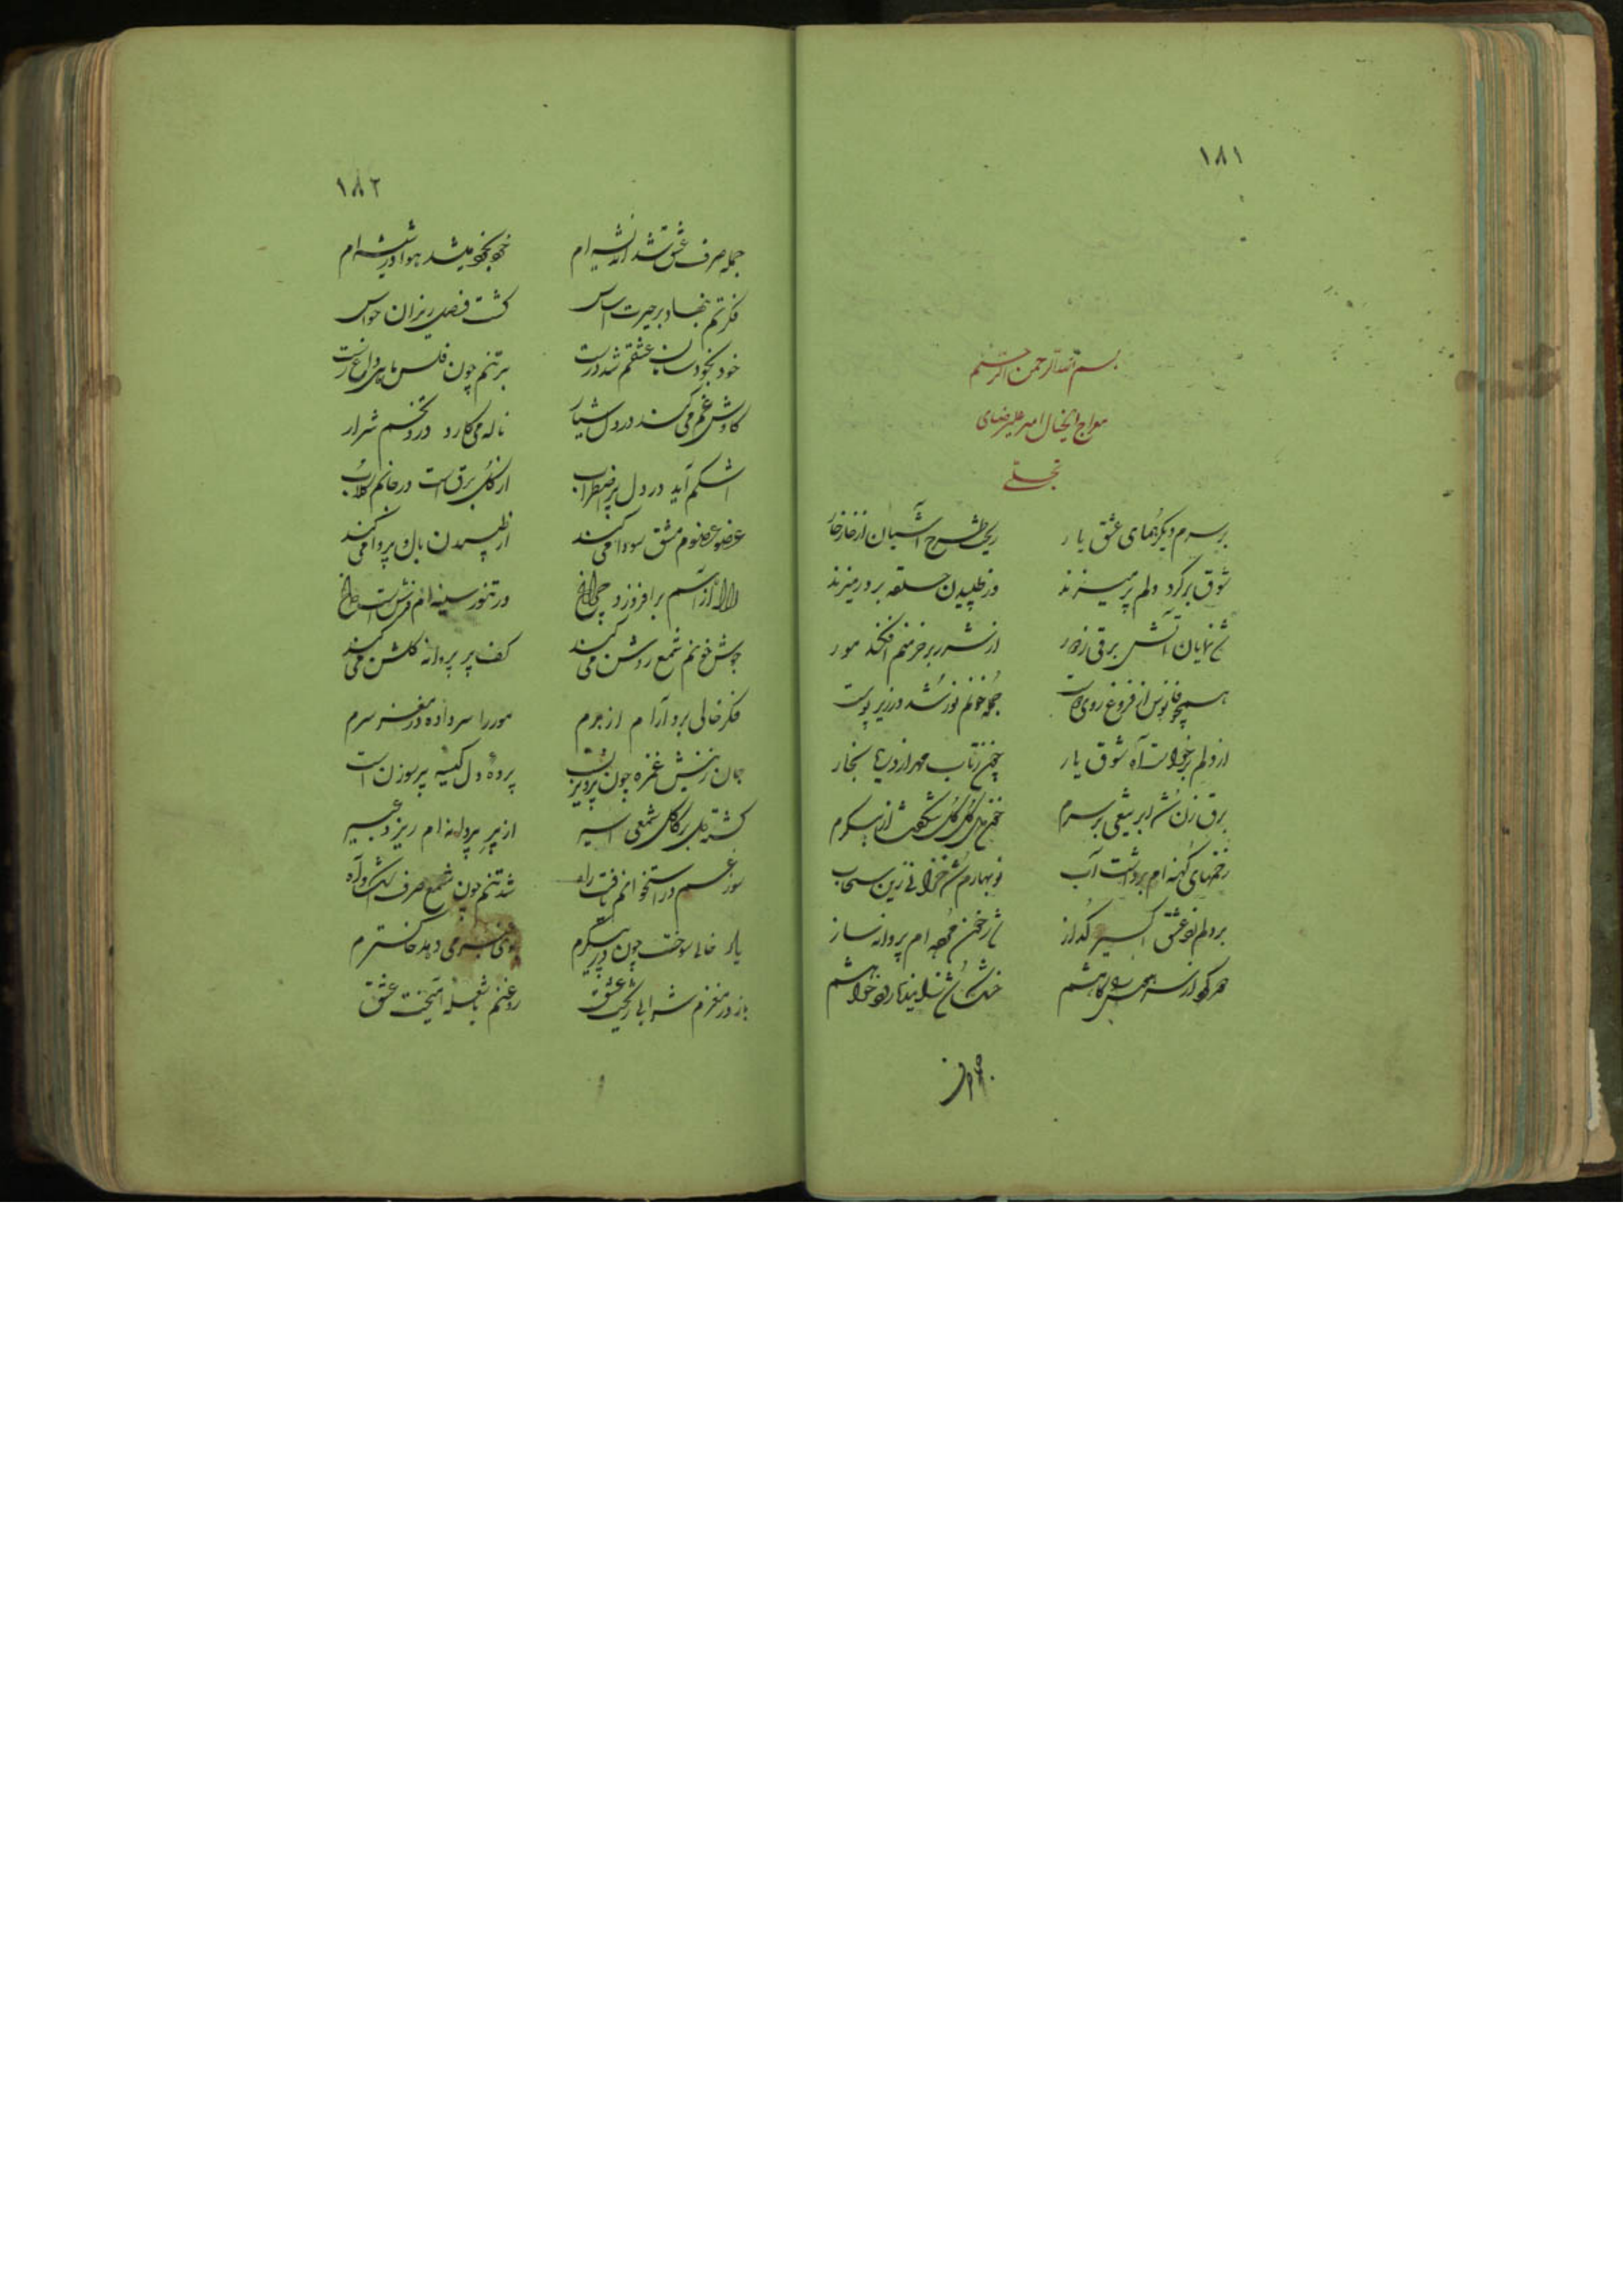 ۱۸۱
بسم الله الرحمن الرحیم
معراج الخیال میر علیرضای
تجلی
بر سرم دیگر همای عشق یار ریخت طرح آشیان از خار خار
شوق بر گرد دلم پر میزند وز طپیدن حلقه بر در میزند
شد نمایان آتش برقی ز دور از شرر بر خرمنم افکند مور
همچو فانوس از فروغ روی دوست جمله خونم نور شد در زیر پوست
از دلم برخواست آه شوق یار چون ز تاب مهر از دریا بخار
برق زن شد ابر تیغی بر سرم گل گل شکفت از پیکرم
زخمهای کهنه ام برداشت آب نوبهارم شد خزانی زین سحاب
بر دلم زد عشق اکسیر گداز شد ز خون مهره ام پروانه ساز
هر که از سر
۱۸۲
جمله صرف عشق شد اندیشه ام خود بخود میشد هوا در شیشه ام
فکرتم بنهاد بر حیرت اساس گشت فصل ریزان حواس
خود بخود سان عشقم شد درست بر تنم چون فلس ماهی داغ رست
کاوش غم می کند در دل شیار ناله می کارد درو تخم شرار
اشکم آید در دل پر اضطراب از گل برق است در جانم گلاب
عضو عضوم مشق سودا می کند از طپیدن بال و پر وا می کند
لاله از آتشم برافروزد چراغ در تنور سینه ام فرش است داغ
جوش خونم شمع روشن می کند کف پر پروانه گلشن می کند
فکر خالی برد آرام از برم مور را سر داده در مغز سرم
جان ز نیش غمزه چون پرویزن است پرده دل کیسه پر سوزن است
گشته بر گل شمعی اسیر از پر پروانه ام ریزد عبیر
سوز غم در استخوانم یافت راه شد تنم چون شمع صرف اشک و آه
یاد خالی سوخت چون در پیکرم بوی عنبر می دهد خاکسترم
باز در مغزم شرابی ریخت عشق روغنم با شعله آمیخت عشق